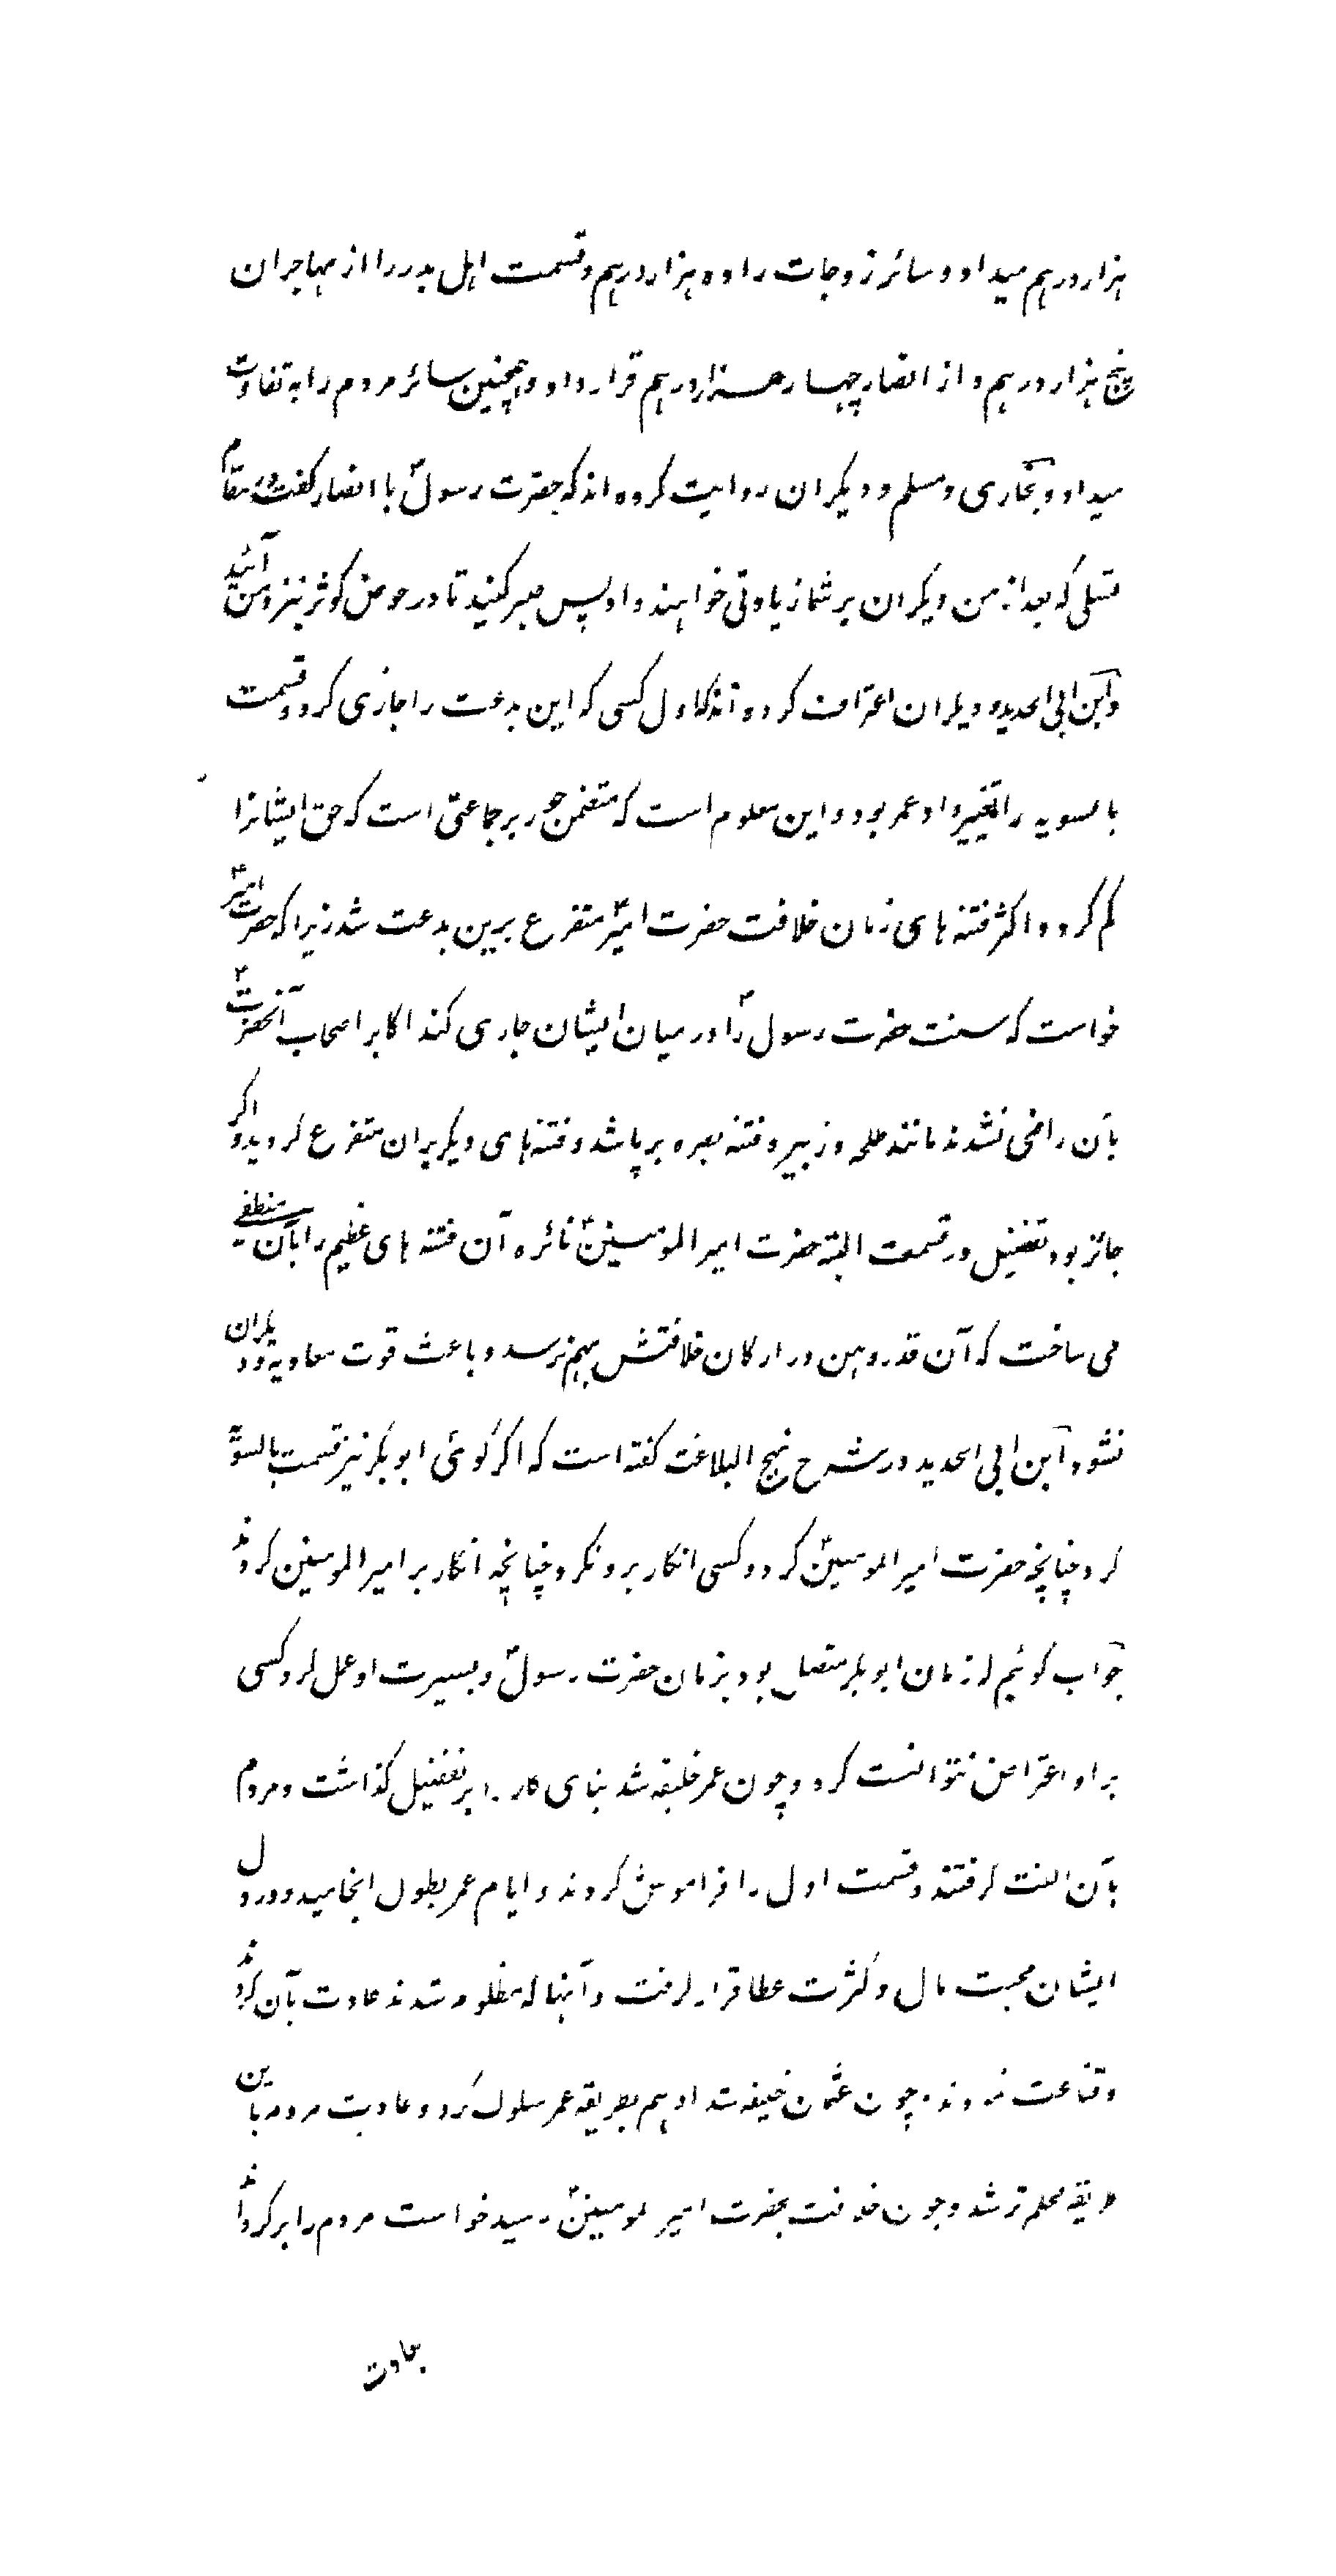 هزار درهم میداد و سائر زوجات را ده هزار درهم و قسمت اهل بدر را از مهاجران
پنج هزار درهم و از انصار چهار هزار درهم قرار داد و همچنین سائر مردم را به تفاوت
میداد و بخاری و مسلم و دیگران روایت کرده اند که حضرت رسولؐ با انصار گفت در مقام
تسلی که بعد از من دیگران بر شما زیادتی خواهند داد پس صبر کنید تا در حوض کوثر بنزد من آئید
و ابن ابی الحدید و دیگران اعتراف کرده اند که اول کسی که این بدعت را جاری کرد و قسمت
بالسویه را تغییر داد عمر بود و این معلوم است که متضمن جور بر جماعتی است که حق ایشانرا
کم کرد و اکثر فتنه های زمان خلافت حضرت امیرؑ متفرع برین بدعت شد زیرا که حضرت امیرؑ
خواست که سنت حضرت رسولؐ را در میان ایشان جاری کند اکابر اصحاب آنحضرتؐ
بآن راضی نشدند مانند طلحه و زبیر و فتنه بصره بر پا شد و فتنهای دیگر بران متفرع گردید و اگر
جائز بود تفضیل در قسمت البته حضرت امیر المومنینؑ نائره آن فتنه های عظیم را بآن منطفی
می ساخت که آن قدر وهن در ارکان خلافتش بهم نرسد و باعث قوت معاویه و دیگران
نشود ابن ابی الحدید در شرح نهج البلاغت گفته است که اگر گوئی ابوبکر نیز قسمت بالسویه
کرد چنانچه حضرت امیر المومنینؑ کرد و کسی انکار برو نکرد چنانچه انکار بر امیر المومنین کردند
جواب گوئیم که زمان ابوبکر متصل بود بزمان حضرت رسولؐ و بسیرت او عمل کرد و کسی
بر او اعتراض نتوانست کرد و چون عمر خلیفه شد بنای کار را بر تفضیل گذاشت و مردم
بآن الفت گرفتند و قسمت اول را فراموش کردند و ایام عمر بطول انجامید و در دل
ایشان محبت مال و کثرت عطا قرار گرفت و آنها که مظلوم شدند عادت بآن کردند
و قناعت نمودند چون عثمان خلیفه شد او هم بطریقه عمر سلوک کرد و عادت مردم باین
طریقه محکم تر شد و چون خلافت بحضرت امیر المومنینؑ رسید خواست مردم را بر گرداند
بعادت